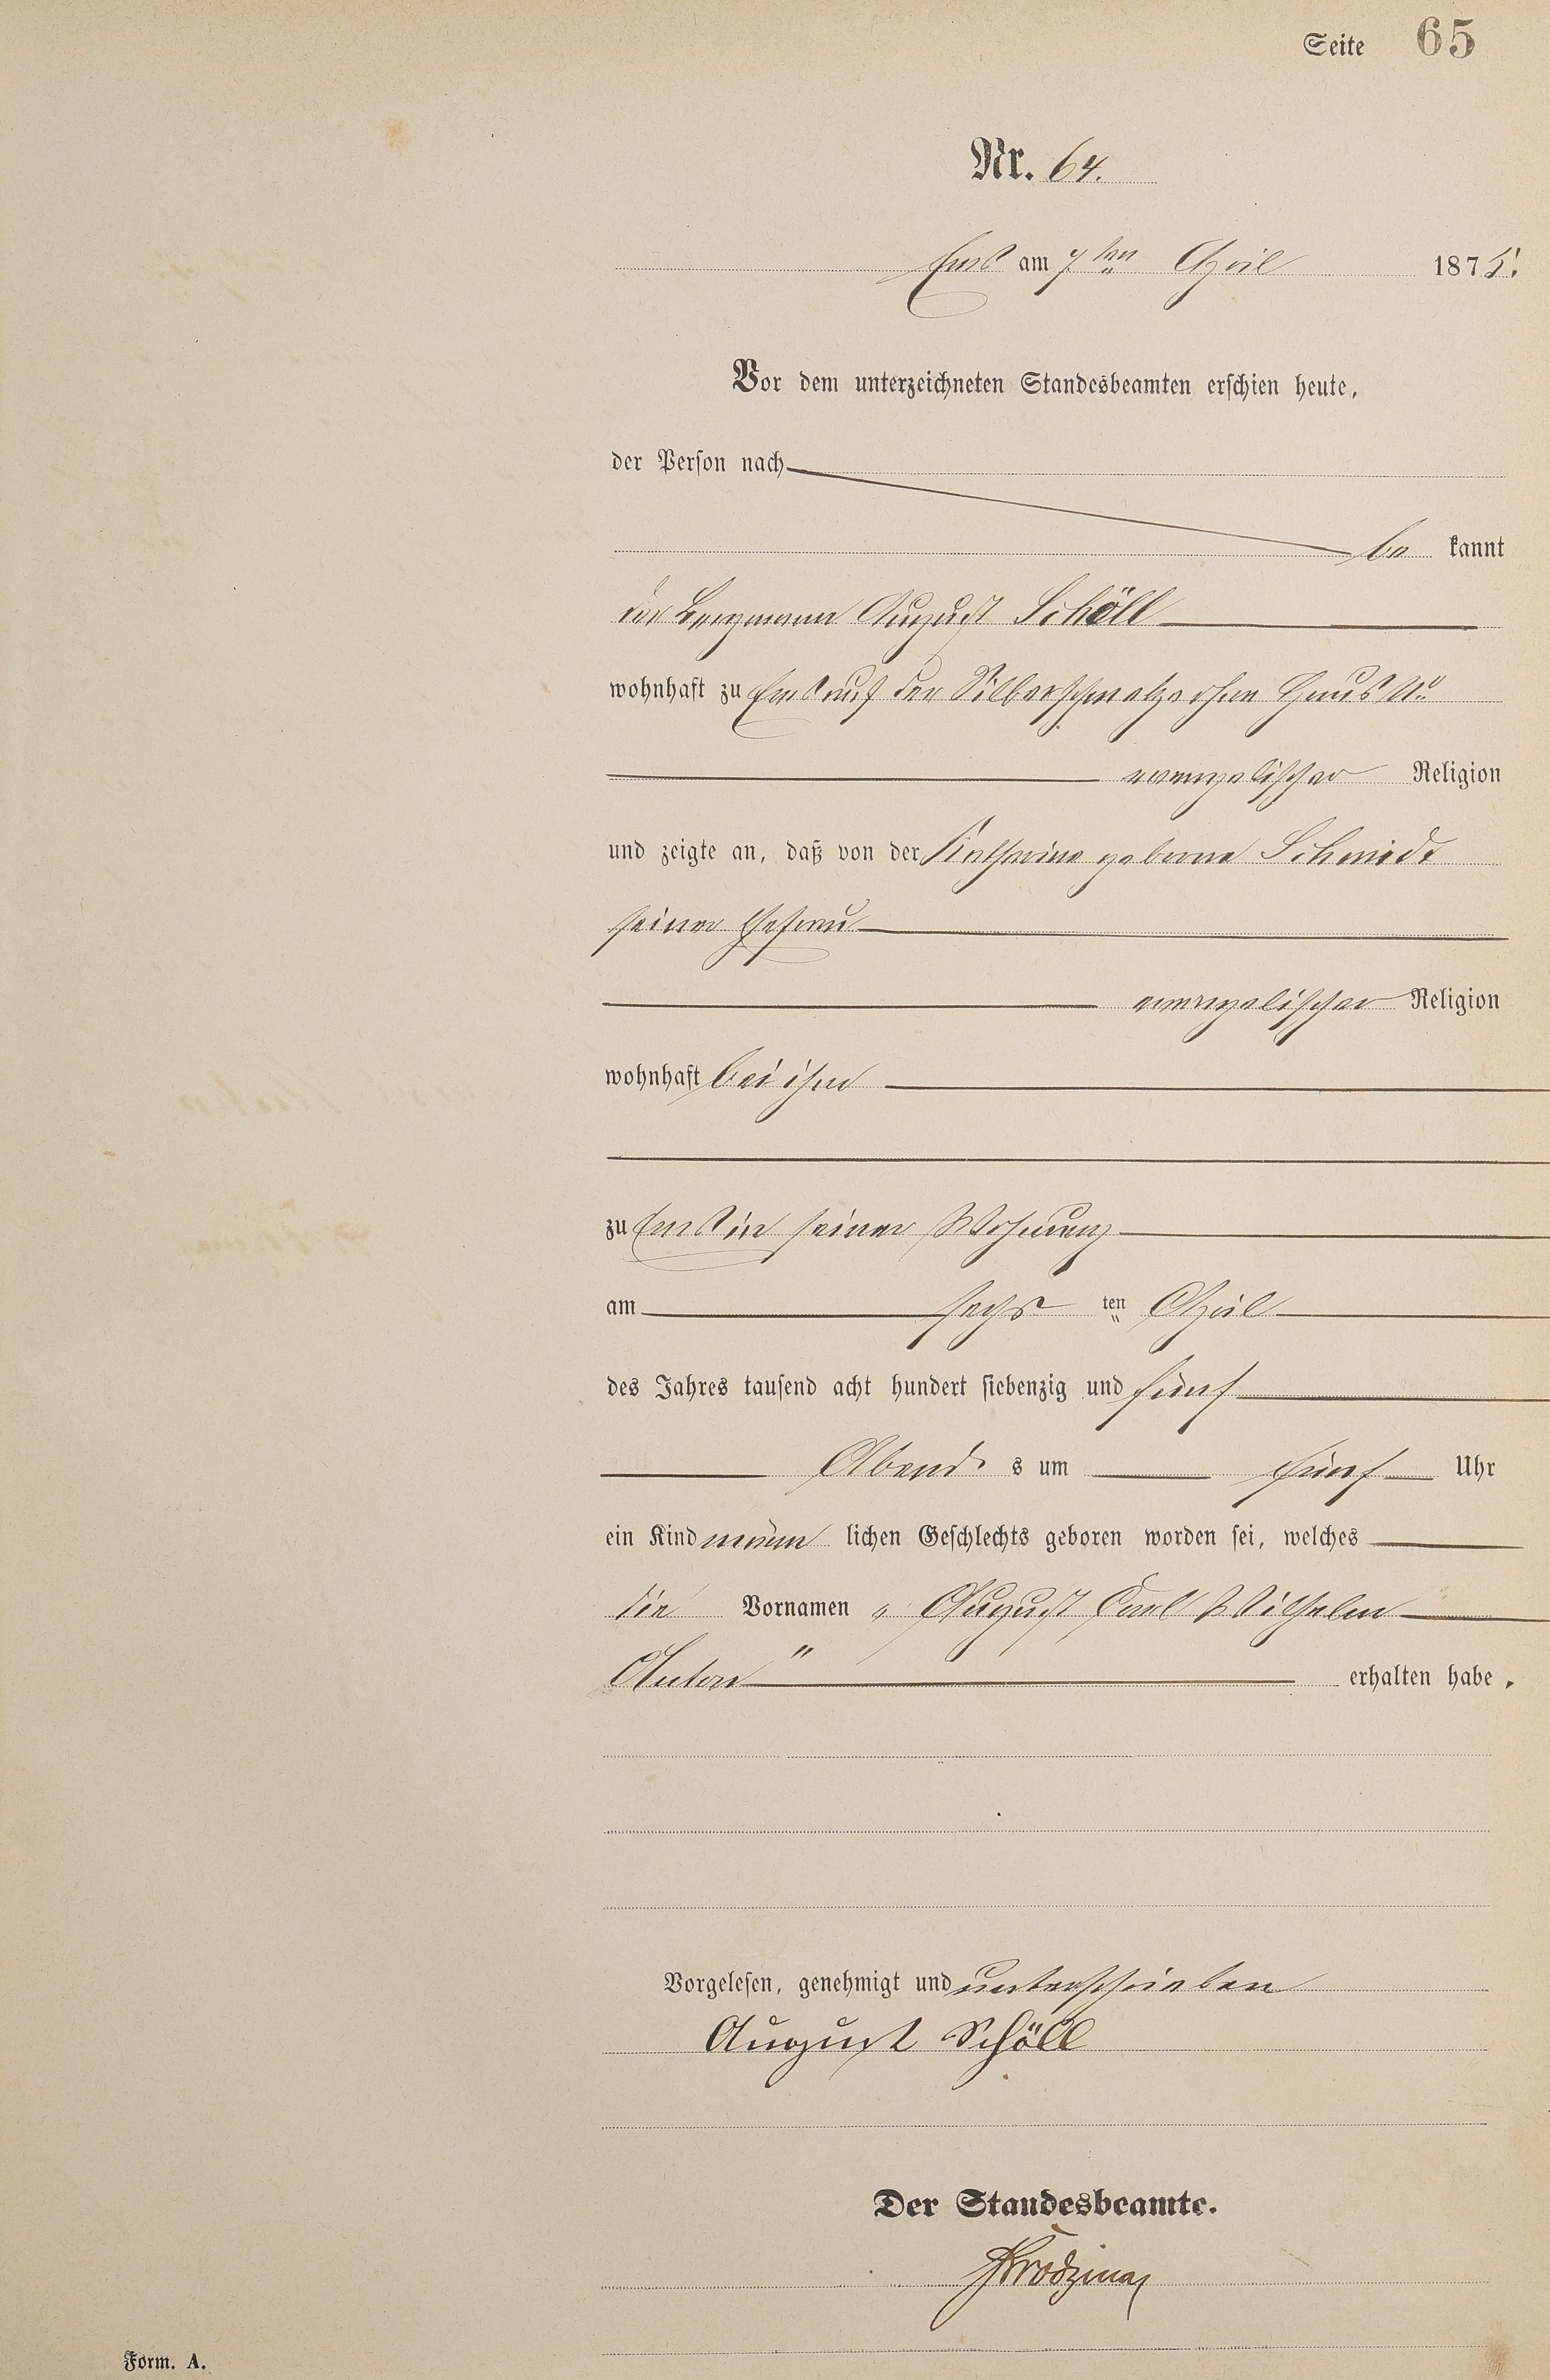 Seite 65
Nr. 64.
Ems am 7ten April 1875.
Vor dem unterzeichneten Standesbeamten erschien heute,
der Person nach
be kannt
der Bergmann August Schöll
wohnhaft zu Ems auf der Silberschmelze ohne Haus No
evangelischer Religion
und zeigte an, daß von der Katharina geborne Schmidt
seiner Ehefrau
evangelischer Religion
wohnhaft bei ihm
zu Ems in seiner Wohnung
am sechs ten April
des Jahres tausend acht hundert siebenzig und fünf
Abend s um fünf Uhr
ein Kind männ lichen Geschlechts geboren worden sei, welches
die Vornamen „ August Carl Wilhelm
Anton" erhalten habe.
Vorgelesen, genehmigt und unterschrieben
August Schöll
Der Standesbeamte.
Form. A.